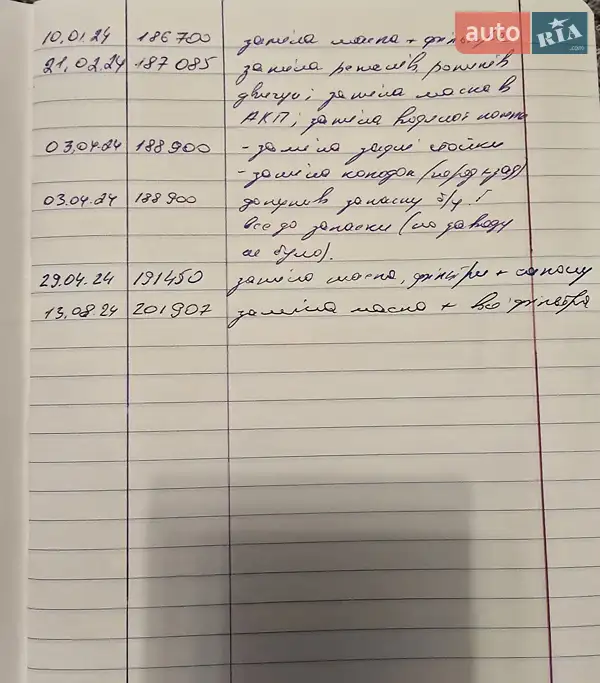 auto RIA .com
10.01.24 186 700 заміна масла +
21.02.24 187 085 заміна ременів, роликів
двигун; заміна масла в
АКП; заміна водяної помпи
03.04.24 188 900 - заміна задні стойки
- заміна колодок (перед+зад)
03.04.24 188 900 запаску б/у і
все до запаски (по заводу
не було).
29.04.24 191450 заміна масла, фільтри + салону
13.08.24 201907 заміна масла + всі фільтра